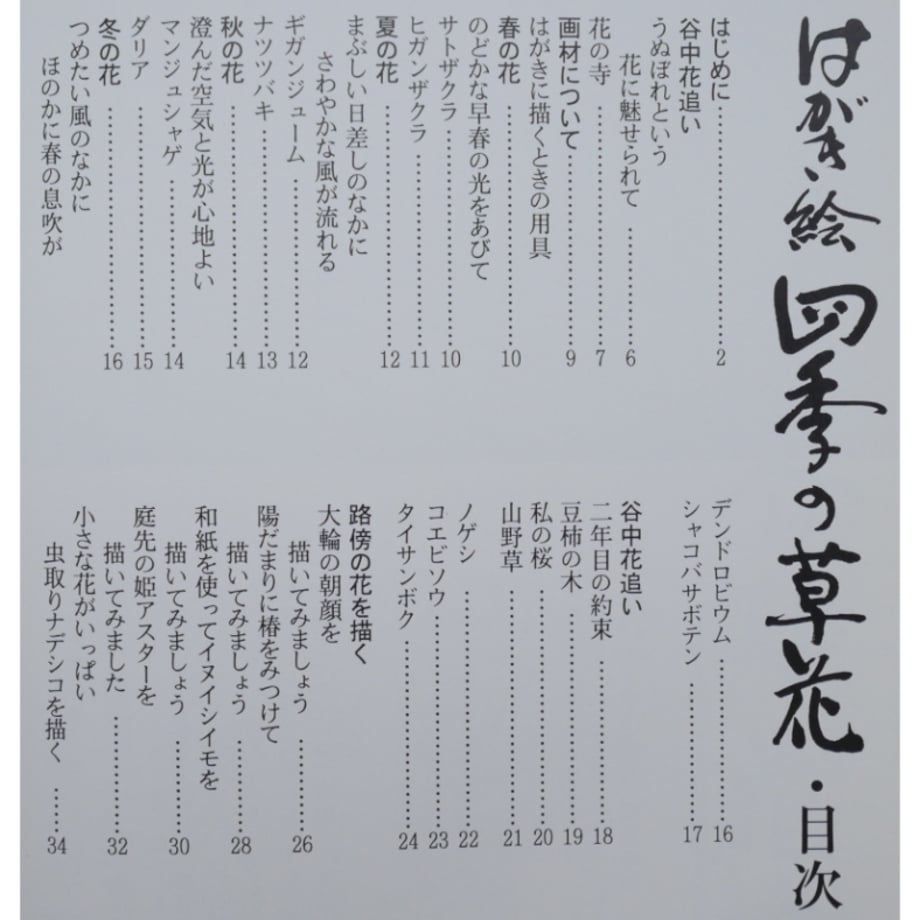 はがき絵 四季の草花・目次
はじめに……………………2
谷中花追い
うぬぼれという
花に魅せられて……………6
花の寺……………………7
画材について……………………9
はがきに描くときの用具
春の花……………………10
のどかな早春の光をあびて
サトザクラ……………………10
ヒガンザクラ……………………11
夏の花……………………12
まぶしい日差しのなかに
さわやかな風が流れる
ギガンジューム……………………12
ナツツバキ……………………13
秋の花……………………14
澄んだ空気と光が心地よい
マンジュシャゲ……………………14
ダリア……………………15
冬の花……………………16
つめたい風のなかに
ほのかに春の息吹が
デンドロビウム……………………16
シャコバサボテン……………………17
谷中花追い
二年目の約束……………………18
豆柿の木……………………19
私の桜……………………20
山野草……………………21
ノゲシ……………………22
コエビソウ……………………23
タイサンボク……………………24
路傍の花を描く
大輪の朝顔を
描いてみましょう……………26
陽だまりに椿をみつけて
描いてみましょう……………28
和紙を使ってイヌイシイモを
描いてみましょう……………30
庭先の姫アスターを
描いてみました……………32
小さな花がいっぱい
虫取りナデシコを描く……34